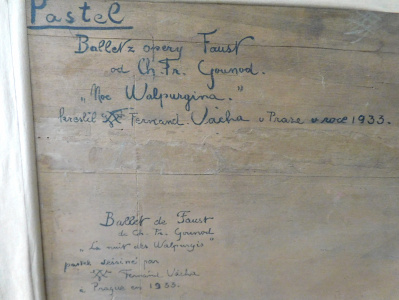 Pastel
Ballet z opery Faust
od Ch. Fr. Gounod.
„Noc Walpurgina."
kreslil Fernand. Vácha v Praze v roce 1933.
Ballet de Faust
de Ch. Fr. Gounod
„La nuit des Walpurgis"
pastel dessiné par
Fernand Vácha
à Prague en 1933.